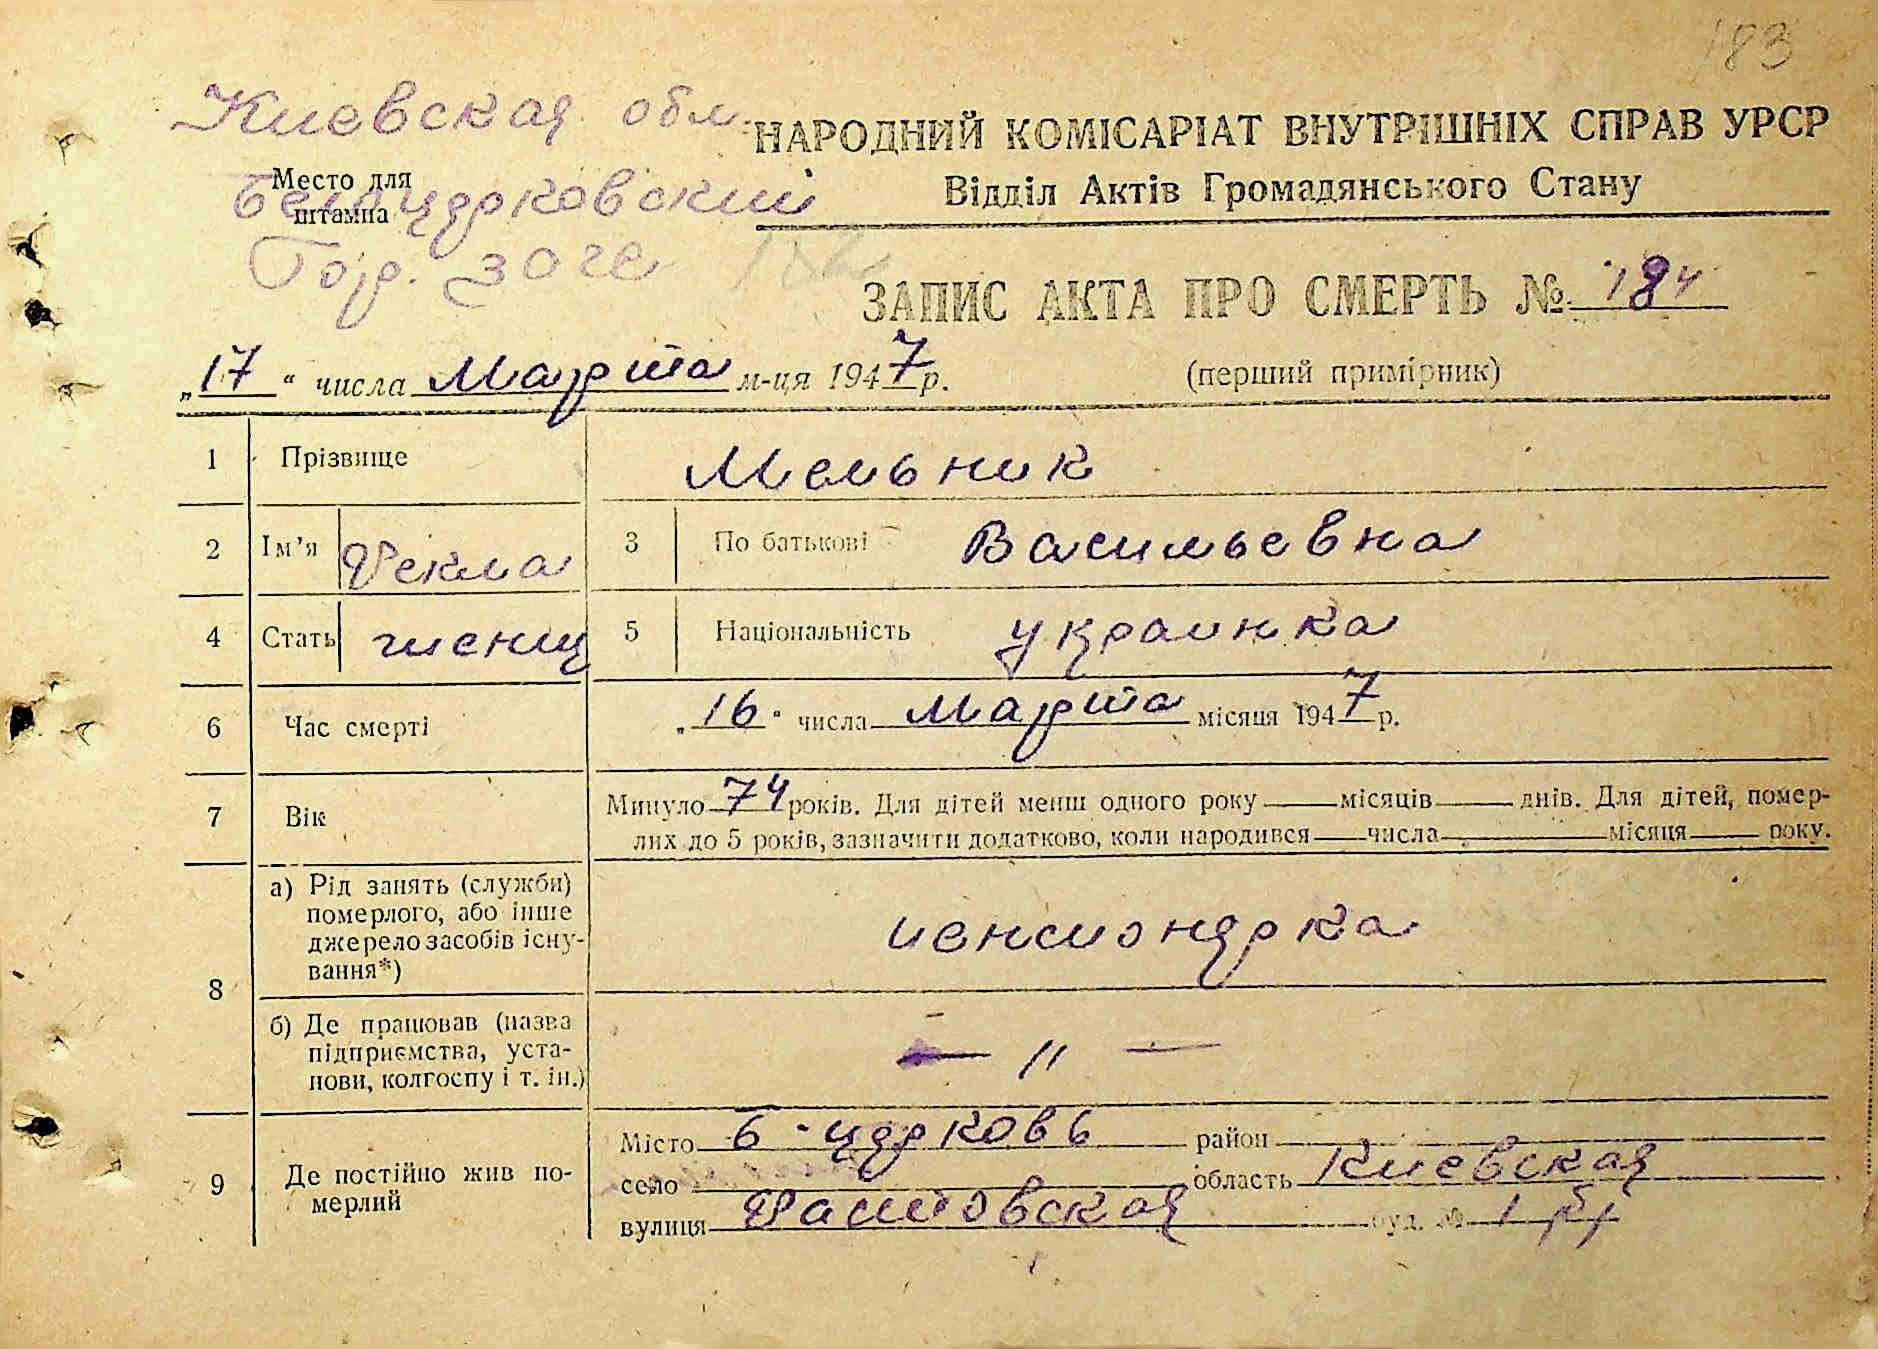 183
Киевская обл.
НАРОДНИЙ КОМІСАРІАТ ВНУТРІШНІХ СПРАВ УРСР
Место для штампа
Белоцерковский
Відділ Актів Громадянського Стану
Гор. загс
ЗАПИС АКТА ПРО СМЕРТЬ № 184
„17“ числа Марта м-ця 1947 р. (перший примірник)
1 Прізвище Мельник
2 Ім'я Фекла 3 По батькові Васильевна
4 Стать женщ 5 Національність украинка
6 Час смерті „16“ числа Марта місяця 1947 р.
7 Вік Минуло 74 років. Для дітей менш одного року місяців днів. Для дітей, помер-
лих до 5 років, зазначити додатково, коли народився числа місяця року.
8 а) Рід занять (служби) померлого, або інше джерело засобів існу-
вання*) пенсионерка
б) Де працював (назва підприємства, уста-
нови, колгоспу і т. ін.) — 〃 —
9 Де постійно жив по-
мерлий
Місто Б-церковь район
село область Киевская
вулиця Фастовская буд. № 1